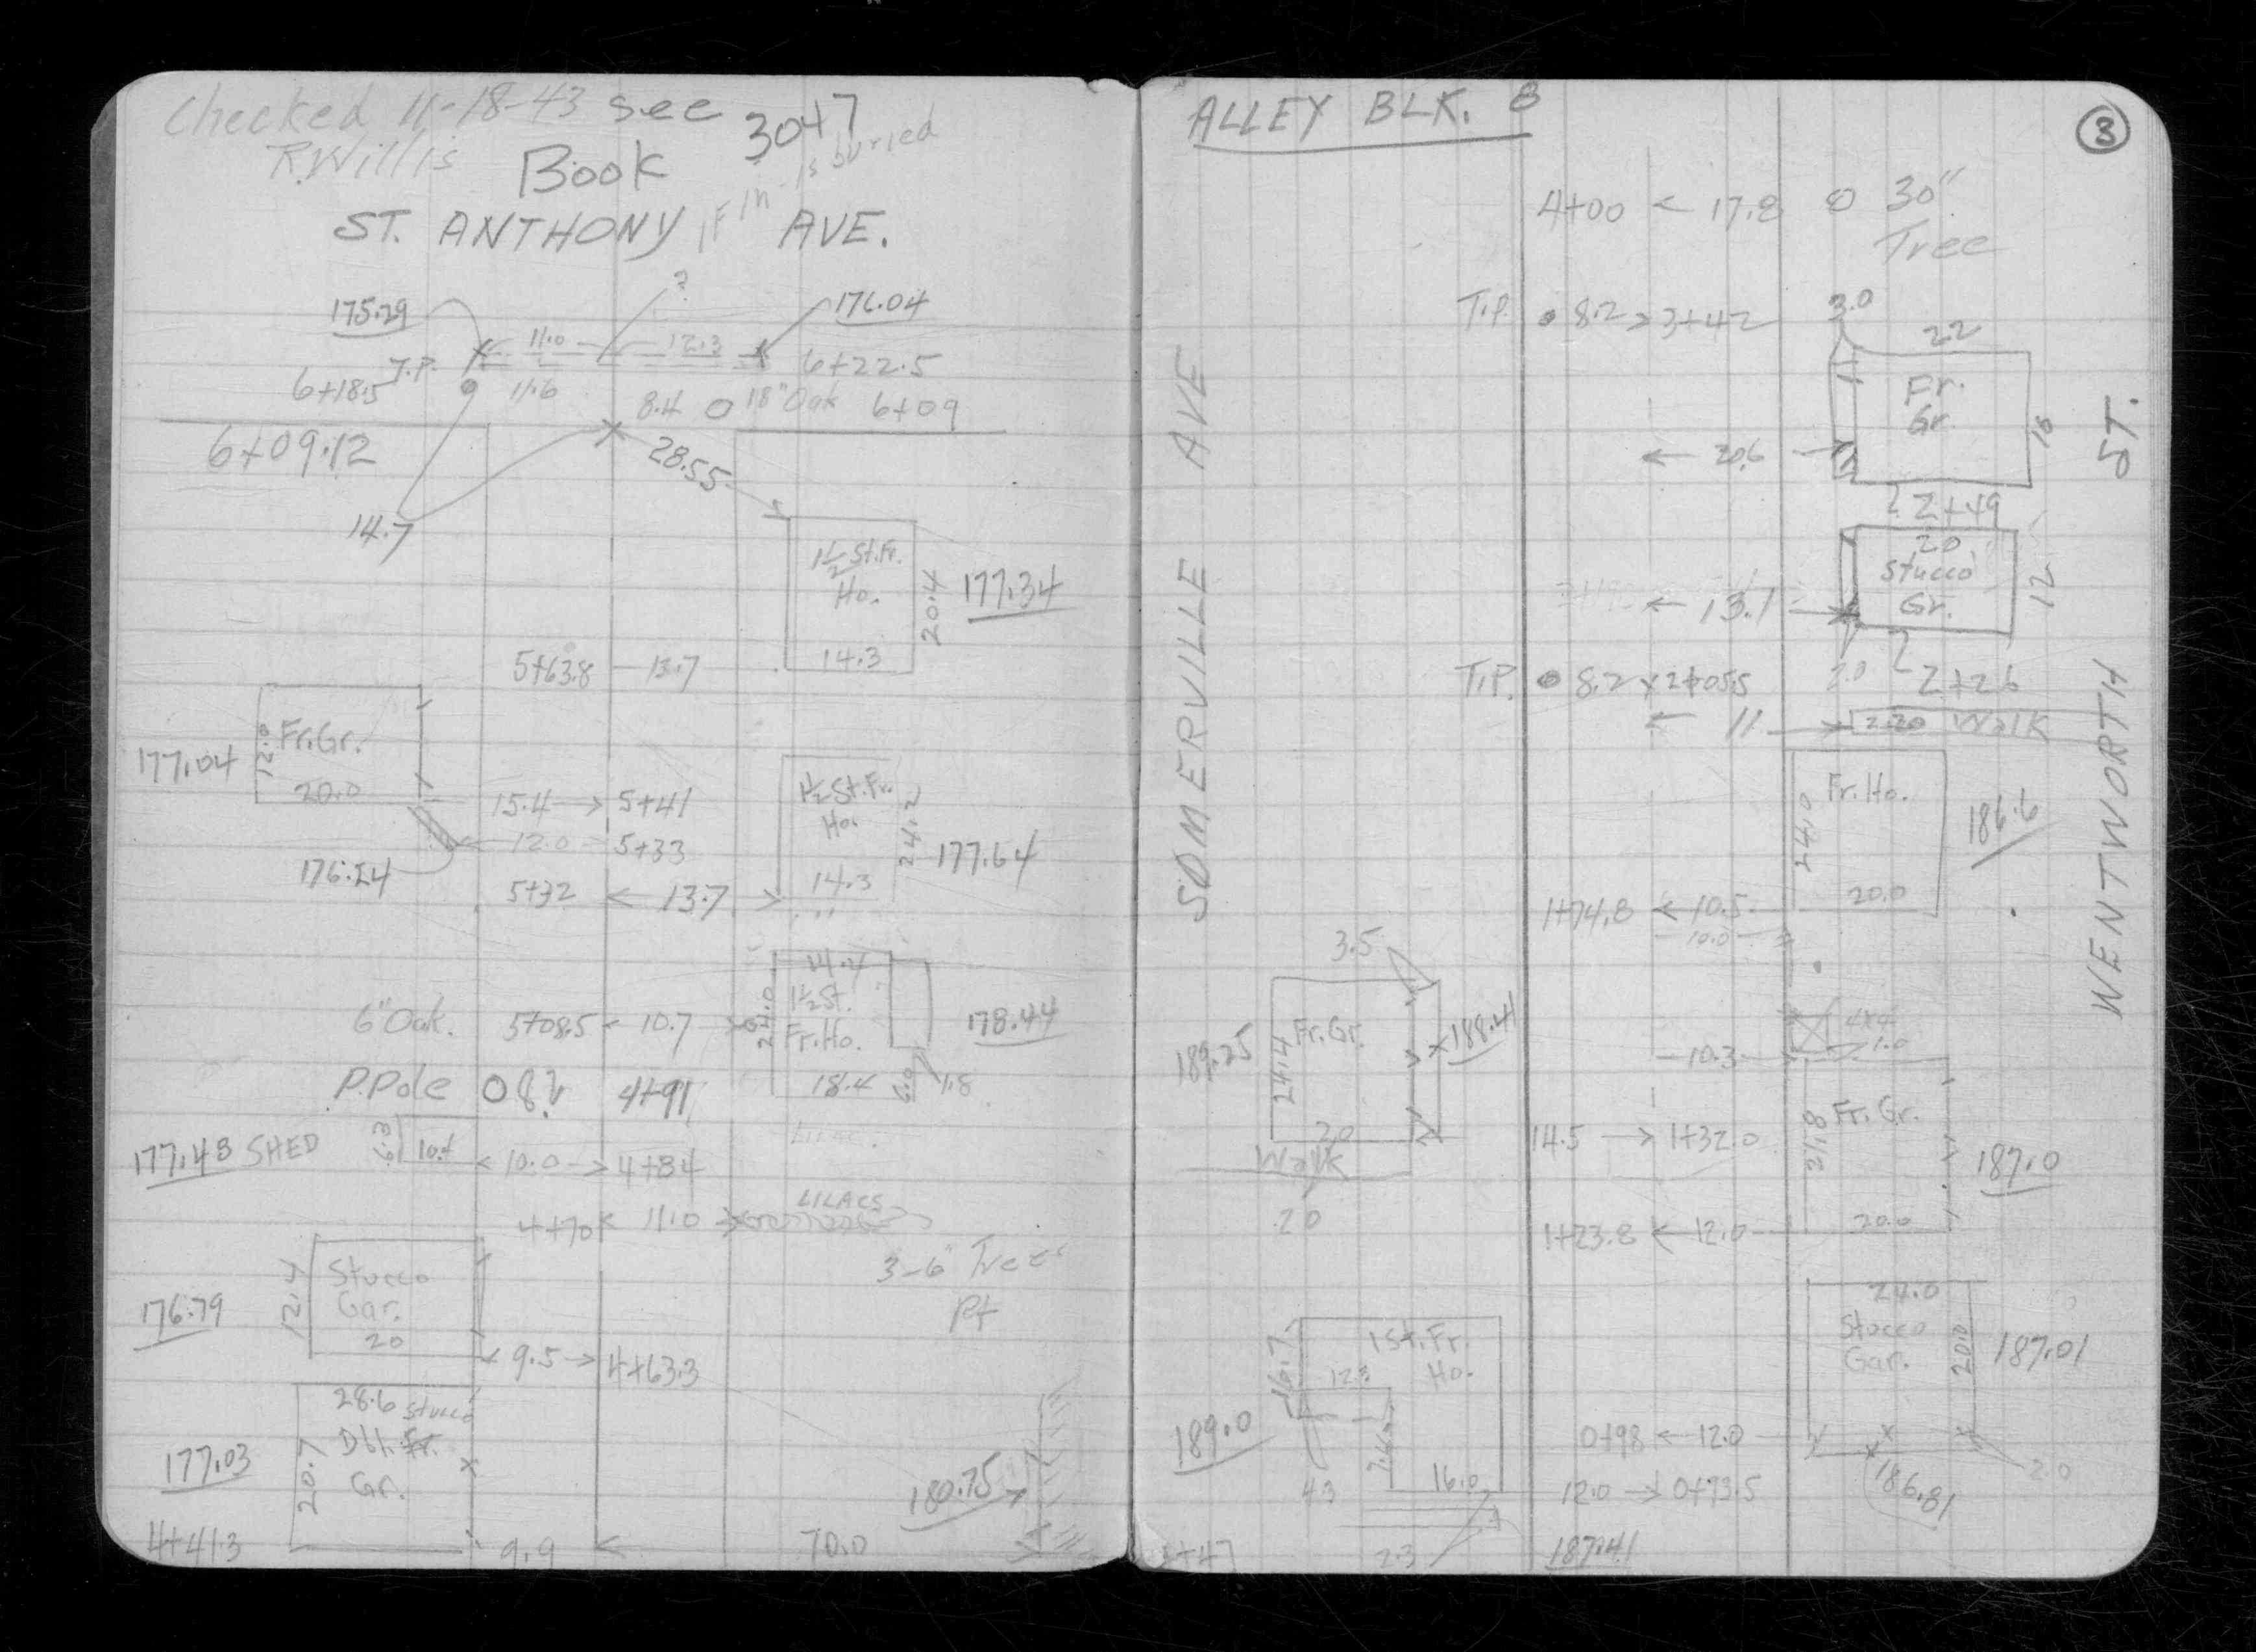 Checked 11-18-43 see 3047
R.Willis Book
is buried
ST. ANTHONY AVE.
?
175.29 176.04
11.0 12.3
T.P. 6+22.5
6+18.5 11.6 8.4 18" Oak 6+09
6+09.12
28.55
14.7
1½ St.Fr.
Ho. 20.4 177.34
5+63.8 13.7 14.3
Fr.Gr.
177.04 12.0
20.0 15.4 5+41
1½ St.Fr.
Ho. 24.2
12.0 5+33 177.64
14.3
5+32 13.7
14.4
1½ St.
6" Oak. 5+08.5 10.7 178.44
Fr.Ho.
P.Pole 4+91 18.4 6.0 1.8
177.48 SHED 6.3 10.4 10.0 4+84
4+70 11.0 LILACS
3-6" Trees
Stucco
Gar.
176.79
20
9.5 4+63.3
28.6 Stucco
Dbl. Fr.
177.03 20.7 Gr.
180.75
4+41.3 9.9 70.0
ALLEY BLK. 8
3
4+00 17.8 30"
Tree
T.P. 8.2 3+42 3.0 22
Fr.
Gr. 18
20.6
2+49
20
Stucco
Gr. 12
13.1
T.P. 8.2 2+05.5 2.0 2+26
11 2.20 Walk
SOMERVILLE AVE
WENTWORTH ST.
Fr.Ho.
24.0 186.6
20.0
1+74.8 10.5
10.0
3.5
4x4
1.0
189.25 Fr.Gr. 24.4 188.41
10.3
20
Walk
20
14.5 1+32.0 21.8 Fr.Gr. 187.0
1+23.8 12.0 20.0
1 St.Fr.
Ho.
16.7 12.3
189.0 16.0
4.3
24.0
Stucco
Gar. 20.0 187.01
0+98 12.0
12.0 0+73.5 186.81 2.0
+47 2.3 187.41